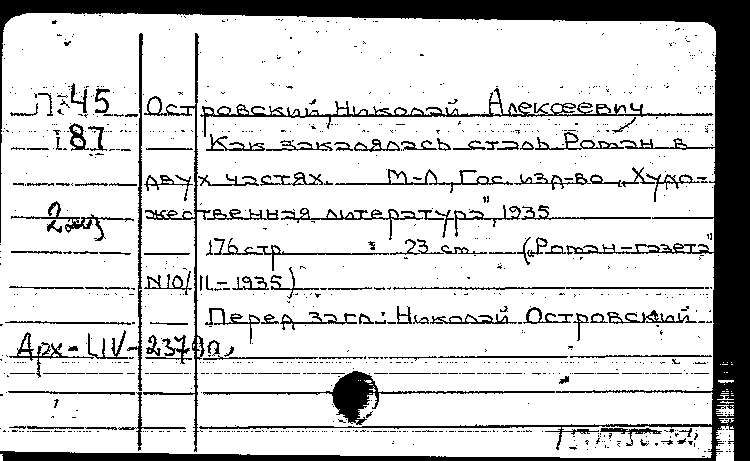 П345 Островский, Николай Алексеевич
187 Как закалялась сталь Роман в
двух частях. М-Л, Гос. изд-во „Худо-
2 экз жественная литература", 1935
176 стр. : 23 см. („Роман-газета"
N10/11-1935)
Перед загл: Николай Островский
Арх-LIV-2379а,